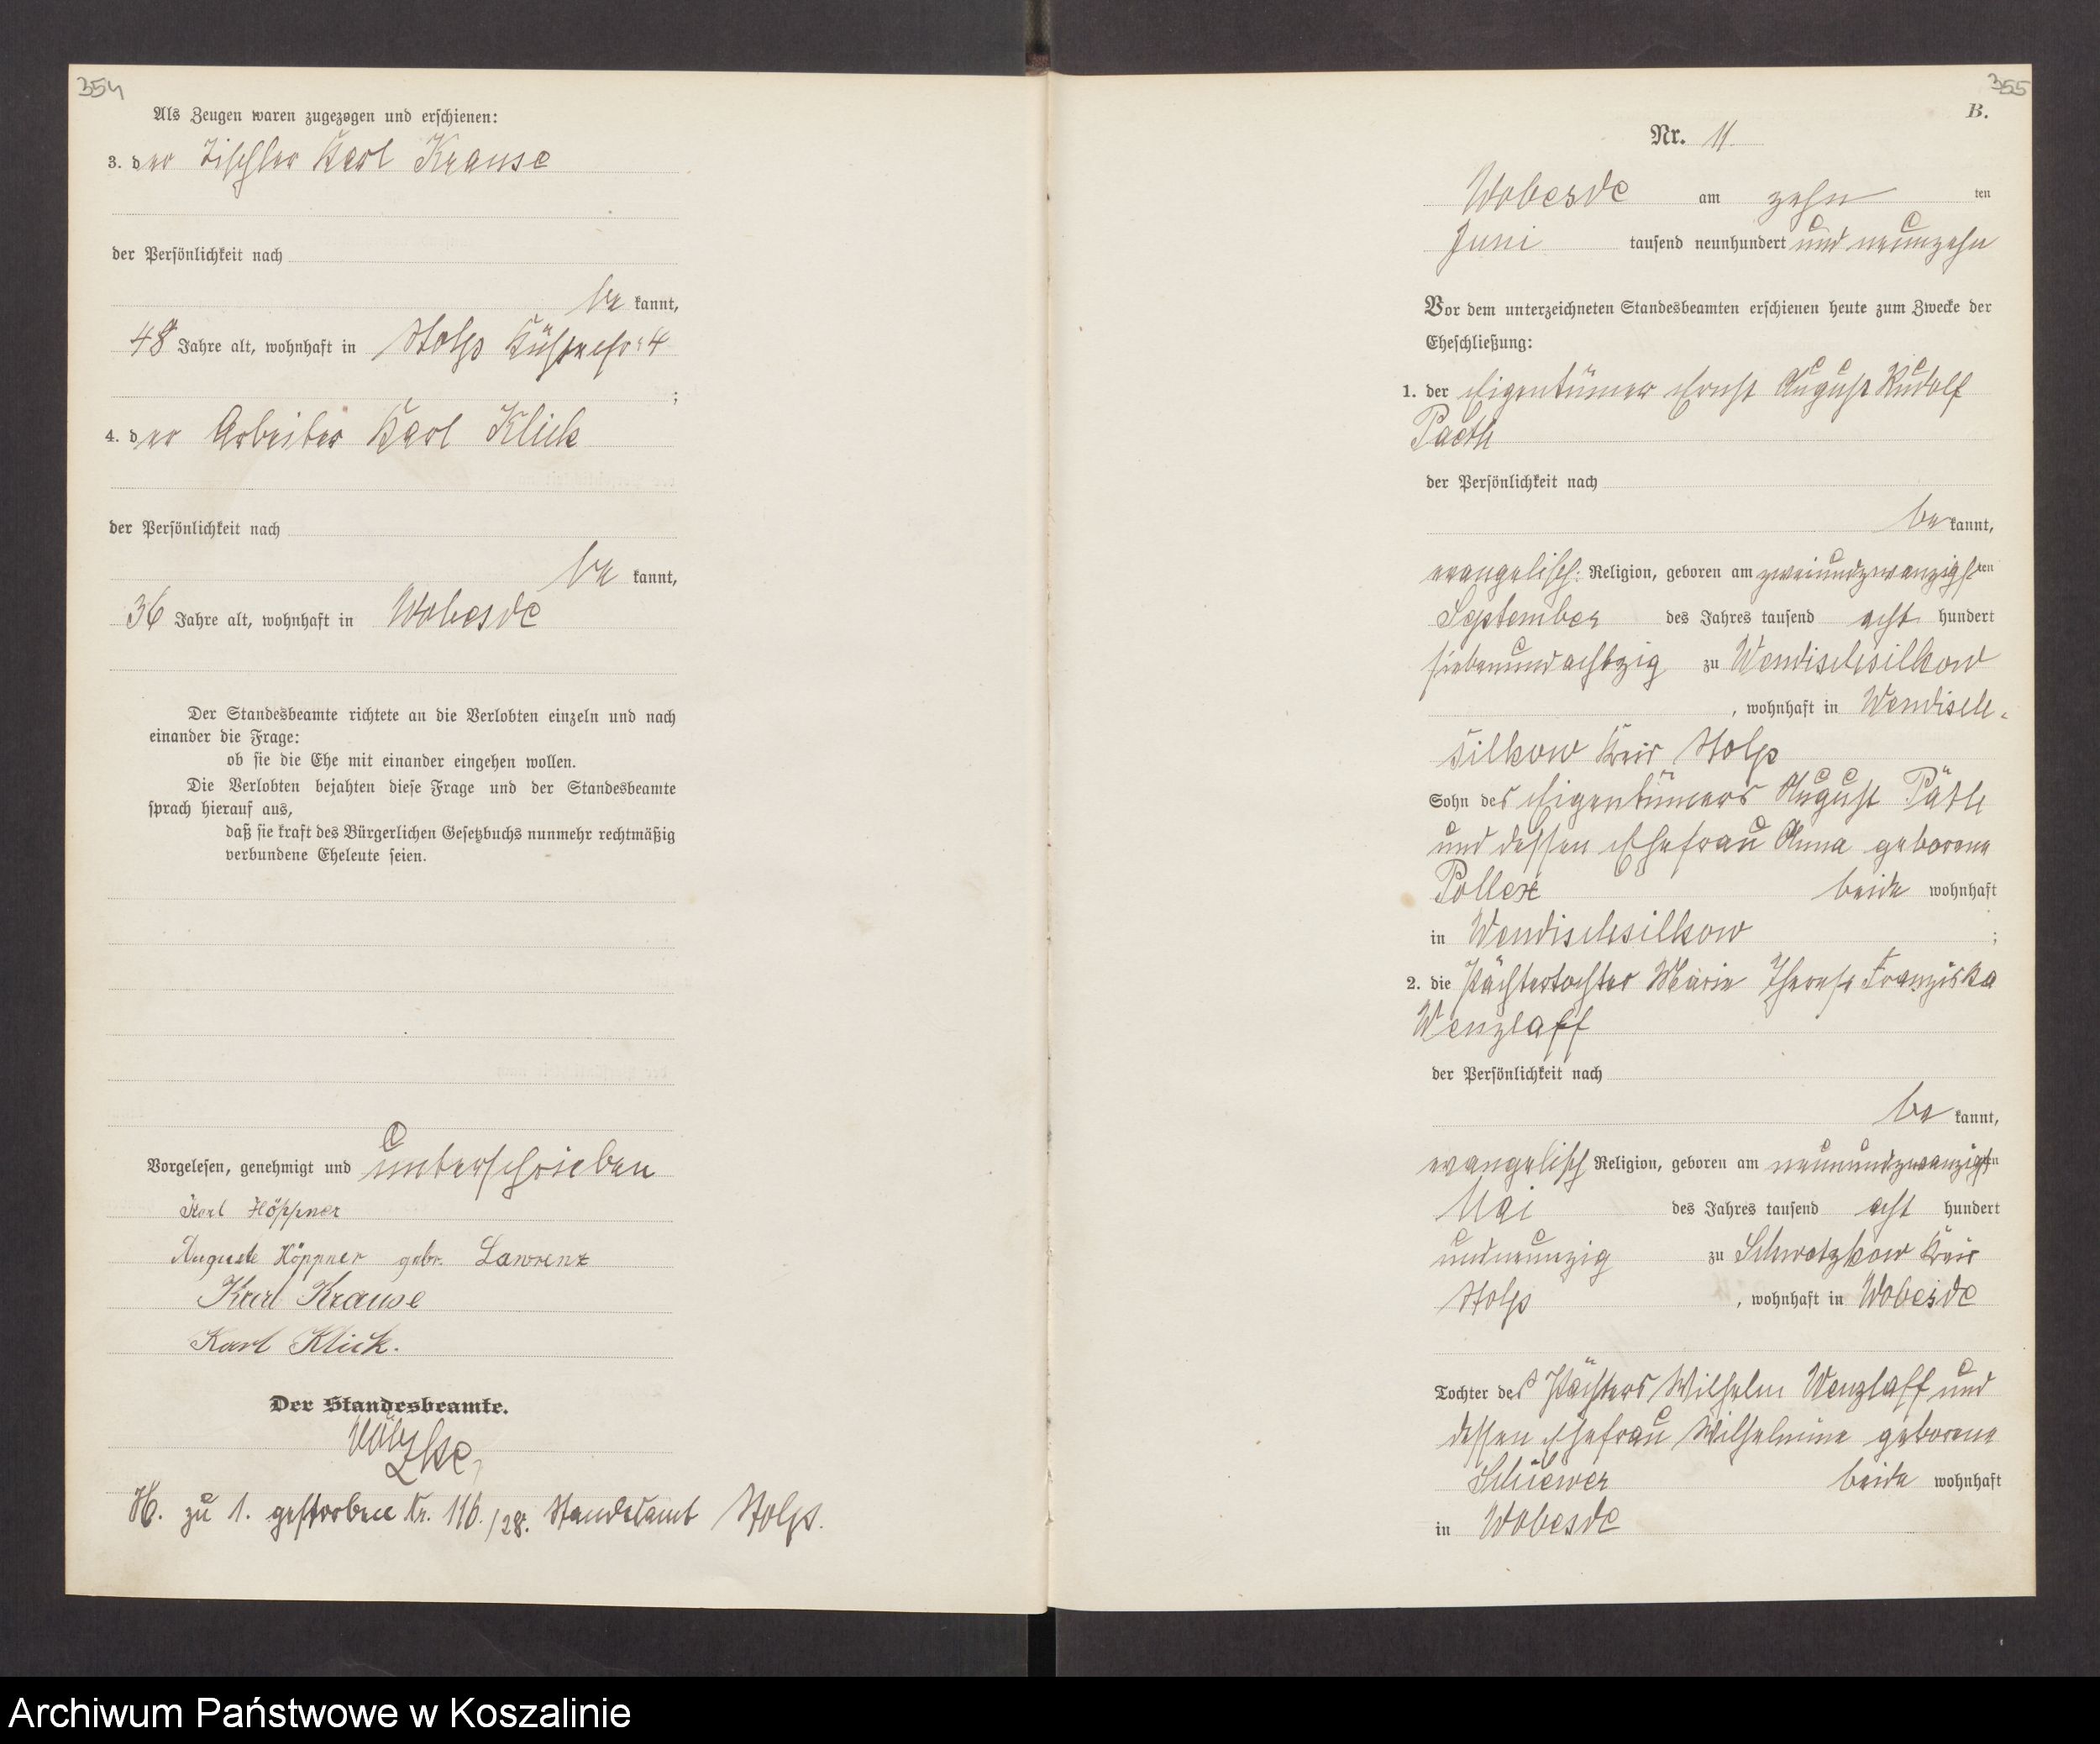 354
Als Zeugen waren zugezogen und erschienen:
3. der Tischler Karl Krause
der Persönlichkeit nach
be kannt,
48 Jahre alt, wohnhaft in Stolp 4
;
4. der Arbeiter Karl Klick
der Persönlichkeit nach
be kannt,
36 Jahre alt, wohnhaft in Wobesde
Der Standesbeamte richtete an die Verlobten einzeln und nach
einander die Frage:
ob sie die Ehe mit einander eingehen wollen.
Die Verlobten bejahten diese Frage und der Standesbeamte
sprach hierauf aus,
daß sie kraft des Bürgerlichen Gesetzbuchs nunmehr rechtmäßig
verbundene Eheleute seien.
Vorgelesen, genehmigt und unterschrieben
Karl Höppner
Auguste Höppner gebr. Lawrenz
Karl Krause
Karl Klick.
Der Standesbeamte.
H. zu 1. gestorben Nr. 116./28. Standesamt Stolp.
355
B.
Nr. 11.
Wobesde am zehn ten
Juni tausend neunhundert und neunzehn
Vor dem unterzeichneten Standesbeamten erschienen heute zum Zwecke der
Eheschließung:
1. der Eigentümer Ernst August Rudolf
Paeth
der Persönlichkeit nach
be kannt,
evangelisch: Religion, geboren am zweiundzwanzigsten
September des Jahres tausend acht hundert
siebenundachtzig zu Wendischsilkow
, wohnhaft in Wendisch-
silkow Kreis Stolp
Sohn des Eigentümers August Päth
und dessen Ehefrau Anna geborene
Pollex beide wohnhaft
in Wendischsilkow ;
2. die Pächtertochter Marie Therese Franziska
Wenzlaff
der Persönlichkeit nach
be kannt,
evangelisch Religion, geboren am neunundzwanzigsten
Mai des Jahres tausend acht hundert
undneunzig zu Schwatzkow Kreis
Stolp , wohnhaft in Wobesde
Tochter des Pächters Wilhelm Wenzlaff und
dessen Ehefrau Wilhelmine geborene
Schiewer beide wohnhaft
in Wobesde
Archiwum Państwowe w Koszalinie